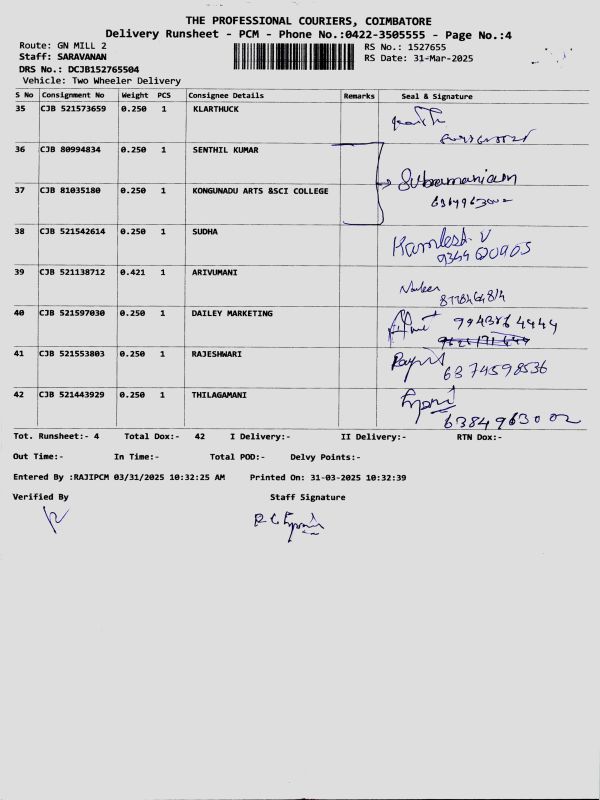 THE PROFESSIONAL COURIERS, COIMBATORE
Delivery Runsheet - PCM - Phone No.:0422-3505555 - Page No.:4
Route: GN MILL 2
RS No.: 1527655
Staff: SARAVANAN
RS Date: 31-Mar-2025
DRS No.: DCJB152765504
Vehicle: Two Wheeler Delivery
S No Consignment No Weight PCS Consignee Details Remarks Seal & Signature
35 CJB 521573659 0.250 1 KLARTHUCK
36 CJB 80994834 0.250 1 SENTHIL KUMAR
Subramaniam
37 CJB 81035180 0.250 1 KONGUNADU ARTS &SCI COLLEGE
38 CJB 521542614 0.250 1 SUDHA
Kamlesh V
39 CJB 521138712 0.421 1 ARIVUMANI
40 CJB 521597030 0.250 1 DAILEY MARKETING
41 CJB 521553803 0.250 1 RAJESHWARI
6374598536
42 CJB 521443929 0.250 1 THILAGAMANI
6384963002
Tot. Runsheet:- 4 Total Dox:- 42 I Delivery:- II Delivery:- RTN Dox:-
Out Time:- In Time:- Total POD:- Delvy Points:-
Entered By :RAJIPCM 03/31/2025 10:32:25 AM Printed On: 31-03-2025 10:32:39
Verified By Staff Signature